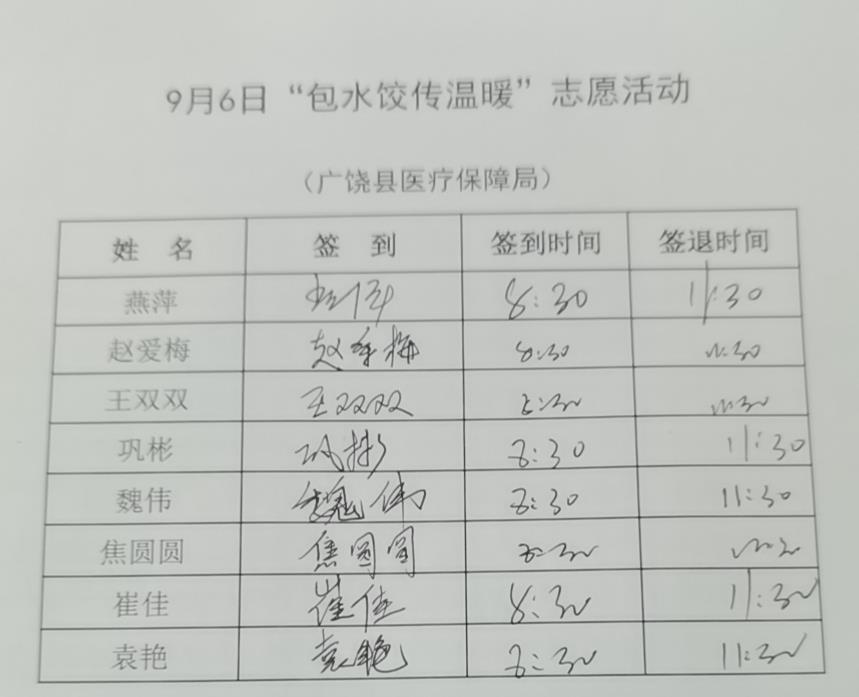 9月6日“包水饺传温暖”志愿活动
（广饶县医疗保障局）
姓 名 签 到 签到时间 签退时间
燕萍 8:30 11:30
赵爱梅 赵爱梅 8:30 11:30
王双双 王双双 8:30 11:30
巩彬 巩彬 8:30 11:30
魏伟 魏伟 8:30 11:30
焦圆圆 焦圆圆 8:30 11:30
崔佳 崔佳 8:30 11:30
袁艳 袁艳 8:30 11:30